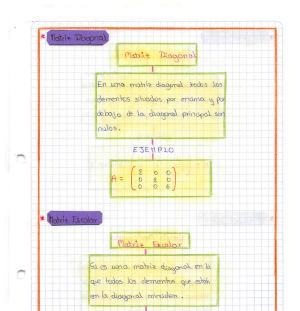 * Matriz Diagonal
Matriz Diagonal
En una matriz diagonal todos los
elementos situados por encima y por
debajo de la diagonal principal son
nulos.
EJEMPLO
A = ( 2 0 0
0 2 0
0 0 6 )
* Matriz Escalar
Matriz Escalar
Si es una matriz diagonal en la
que todos los elementos que están
en la diagonal coinciden.